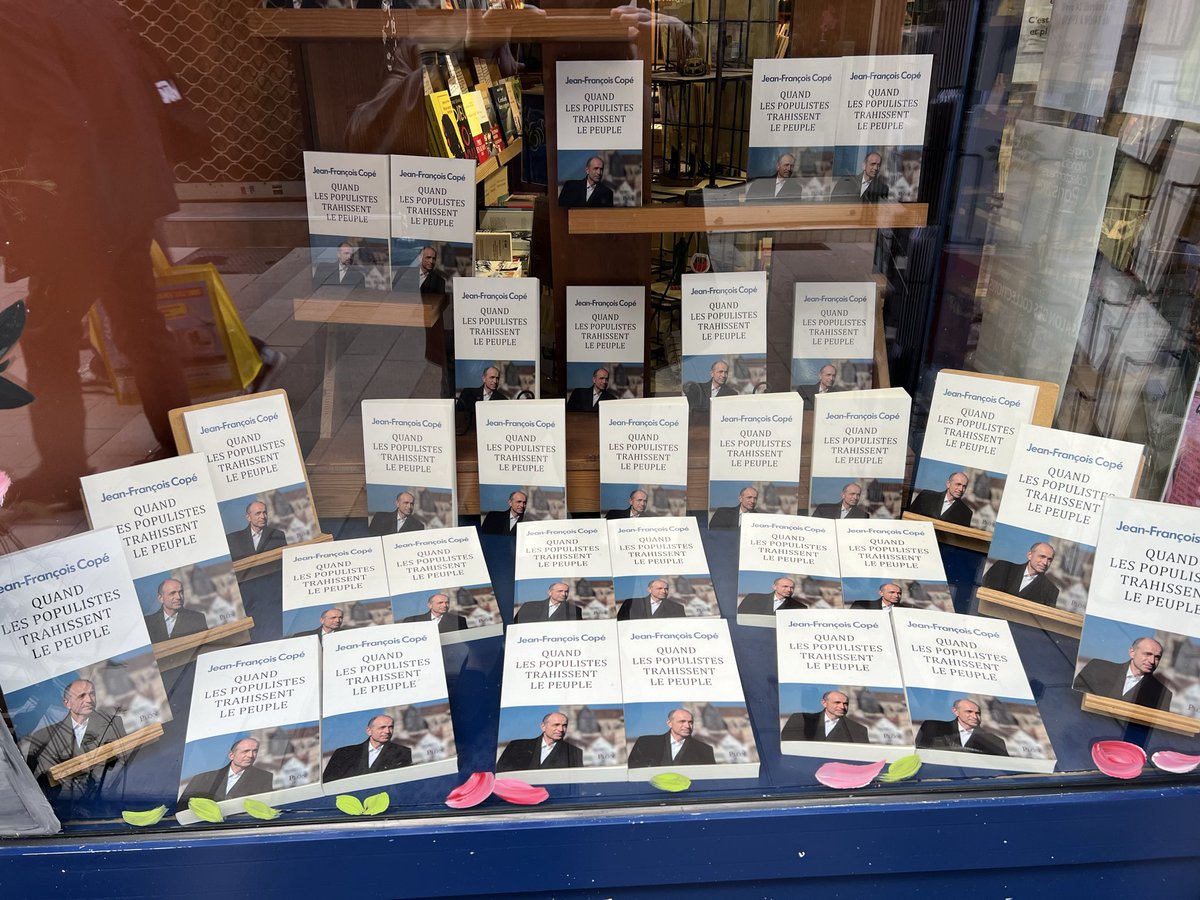 C'est
et pl
Jean-François Copé
QUAND
LES POPULISTES
TRAHISSENT
LE PEUPLE
Jean-François Copé
QUAND
LES POPULISTES
TRAHISSENT
LE PEUPLE
Jean-François Copé
QUAND
LES POPULISTES
TRAHISSENT
LE PEUPLE
Jean-François Copé
QUAND
LES POPULISTES
TRAHISSENT
LE PEUPLE
Jean-François Copé
QUAND
LES POPULISTES
TRAHISSENT
LE PEUPLE
Jean-François Copé
QUAND
LES POPULISTES
TRAHISSENT
LE PEUPLE
Jean-François Copé
QUAND
LES POPULISTES
TRAHISSENT
LE PEUPLE
Jean-François Copé
QUAND
LES POPULISTES
TRAHISSENT
LE PEUPLE
Jean-François Copé
QUAND
LES POPULISTES
TRAHISSENT
LE PEUPLE
Jean-François Copé
QUAND
LES POPULISTES
TRAHISSENT
LE PEUPLE
Jean-François Copé
QUAND
LES POPULISTES
TRAHISSENT
LE PEUPLE
Jean-François Copé
QUAND
LES POPULISTES
TRAHISSENT
LE PEUPLE
Jean-François Copé
QUAND
LES POPULISTES
TRAHISSENT
LE PEUPLE
Jean-François Copé
QUAND
LES POPULISTES
TRAHISSENT
LE PEUPLE
Jean-François Copé
QUAND
LES POPULISTES
TRAHISSENT
LE PEUPLE
Jean-François Copé
QUAND
LES POPULISTES
TRAHISSENT
LE PEUPLE
Jean-François Copé
QUAND
LES POPULISTES
TRAHISSENT
LE PEUPLE
Jean-François Copé
QUAND
LES POPULISTES
TRAHISSENT
LE PEUPLE
Jean-François Copé
QUAND
LES POPULISTES
TRAHISSENT
LE PEUPLE
Plon
Jean-François Copé
QUAND
LES POPULISTES
TRAHISSENT
LE PEUPLE
Jean-François Copé
QUAND
LES POPULISTES
TRAHISSENT
LE PEUPLE
Jean-François Copé
QUAND
LES POPULISTES
TRAHISSENT
LE PEUPLE
Jean-François Copé
QUAND
LES POPULISTES
TRAHISSENT
LE PEUPLE
Jean-François Copé
QUAND
LES POPULISTES
TRAHISSENT
LE PEUPLE
Jean-François Copé
QUAND
LES POPULISTES
TRAHISSENT
LE PEUPLE
Jean-François
QUAND
LES POPULISTE
TRAHISSENT
LE PEUPLE
Jean-François Copé
QUAND
LES POPULISTES
TRAHISSENT
LE PEUPLE
Plon
Jean-François Copé
QUAND
LES POPULISTES
TRAHISSENT
LE PEUPLE
Plon
Jean-François Copé
QUAND
LES POPULISTES
TRAHISSENT
LE PEUPLE
Plon
Jean-François Copé
QUAND
LES POPULISTES
TRAHISSENT
LE PEUPLE
Plon
Jean-François Copé
QUAND
LES POPULISTES
TRAHISSENT
LE PEUPLE
Plon
Jean-François Copé
QUAND
LES POPULISTES
TRAHISSENT
LE PEUPLE
Plon